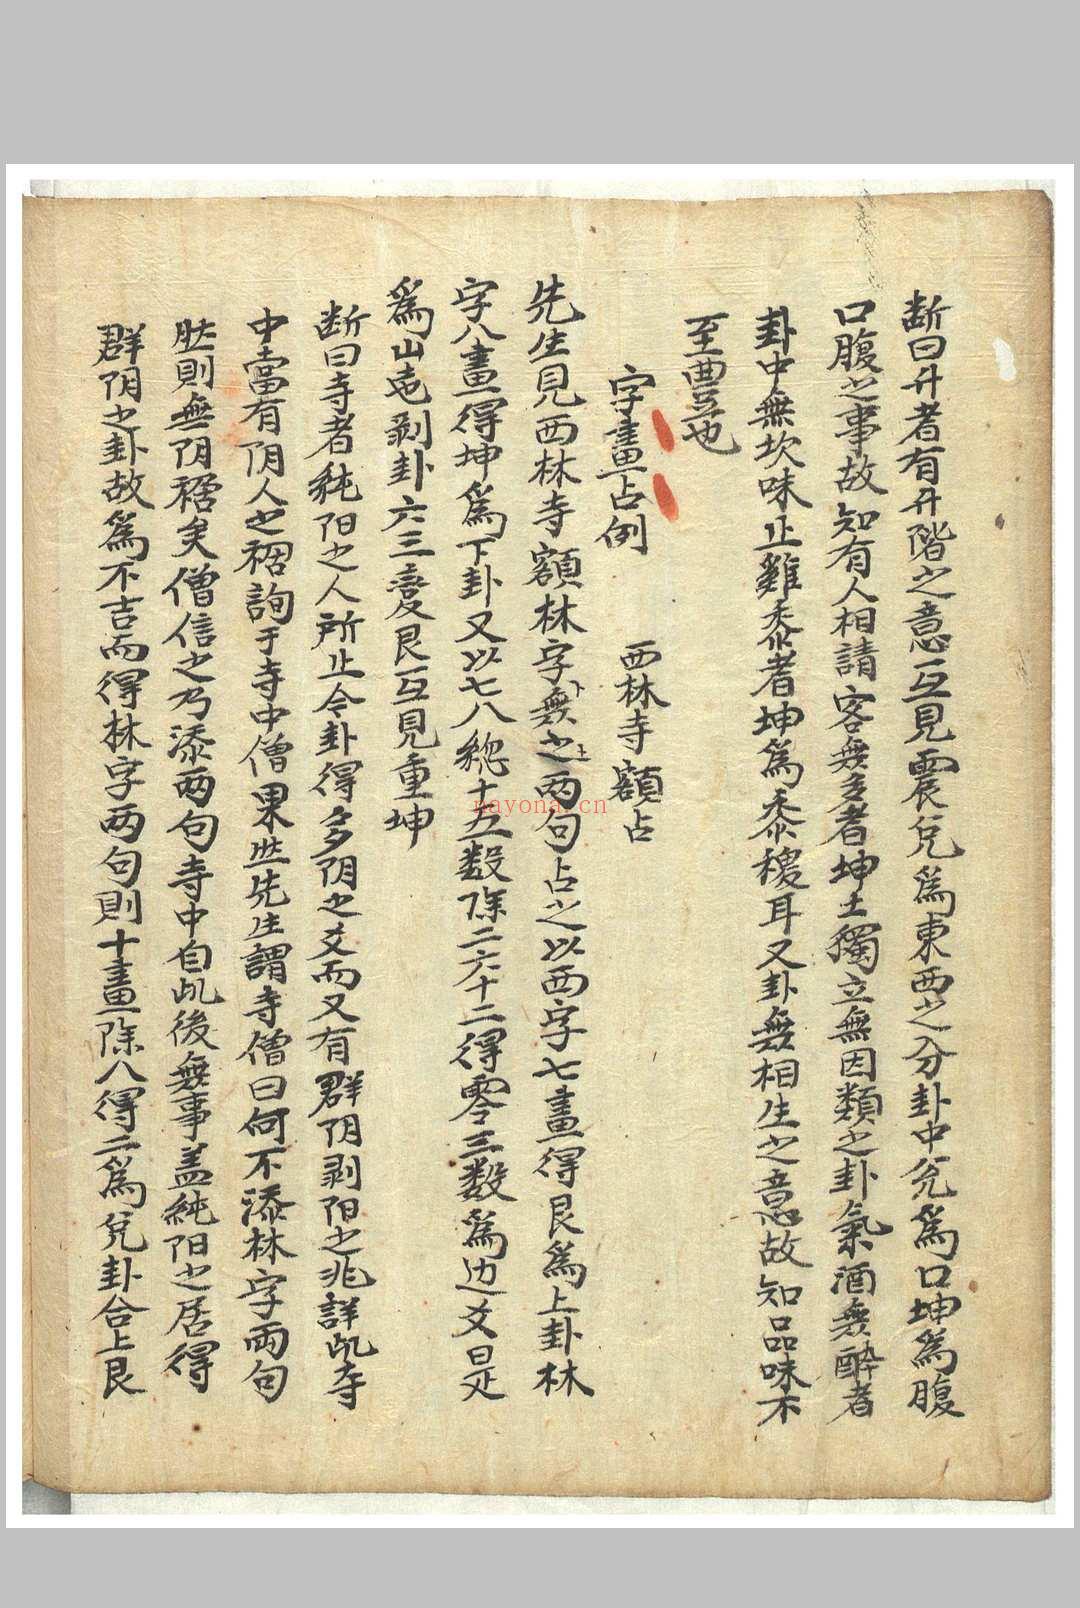 断曰升者有升階之意互見震兌爲東西之分卦中兌爲口坤爲腹
口腹之事故知有人相請客無多者坤土獨立無因類之卦氣酒無醉者
卦中無坎味止雞黍者坤爲黍稷耳又卦無相生之意故知品味不
至豐也
字畫占例 西林寺額占
先生見西林寺額林字無之兩句占之以西字七畫得艮爲上卦林
字八畫得坤爲下卦又以七八総十五数除二六十二得零三数爲边爻是
爲山地剥卦六三变艮互見重坤
断曰寺者純阳之人所止今卦得多阴之爻而又有群阴剥阳之兆詳此寺
中當有阴人之裙詢于寺中僧果然先生謂寺僧曰何不添林字两句
然則無阴裙矣僧信之乃添两句寺中自此後無事盖純阳之居得
群阴之卦故爲不吉而得林字两句則十畫除八得二爲兌卦合上艮
nayona.cn